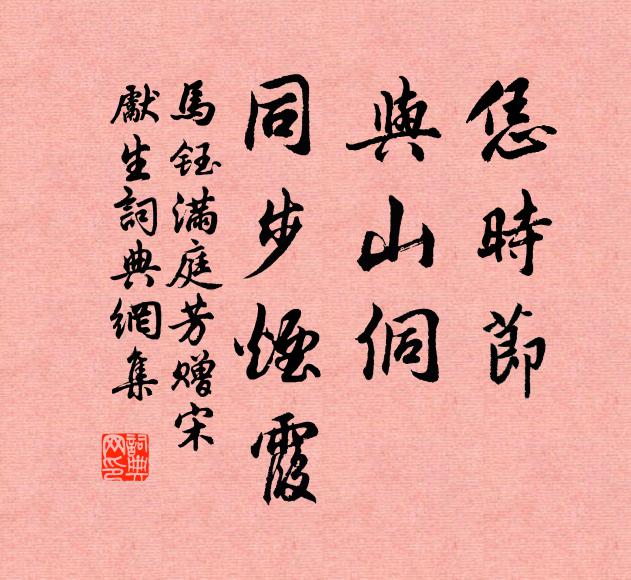 恁時節
與山侗
同步煙霞
馬鈺滿庭芳赠宋
獻生詞典網集
詞典
网印